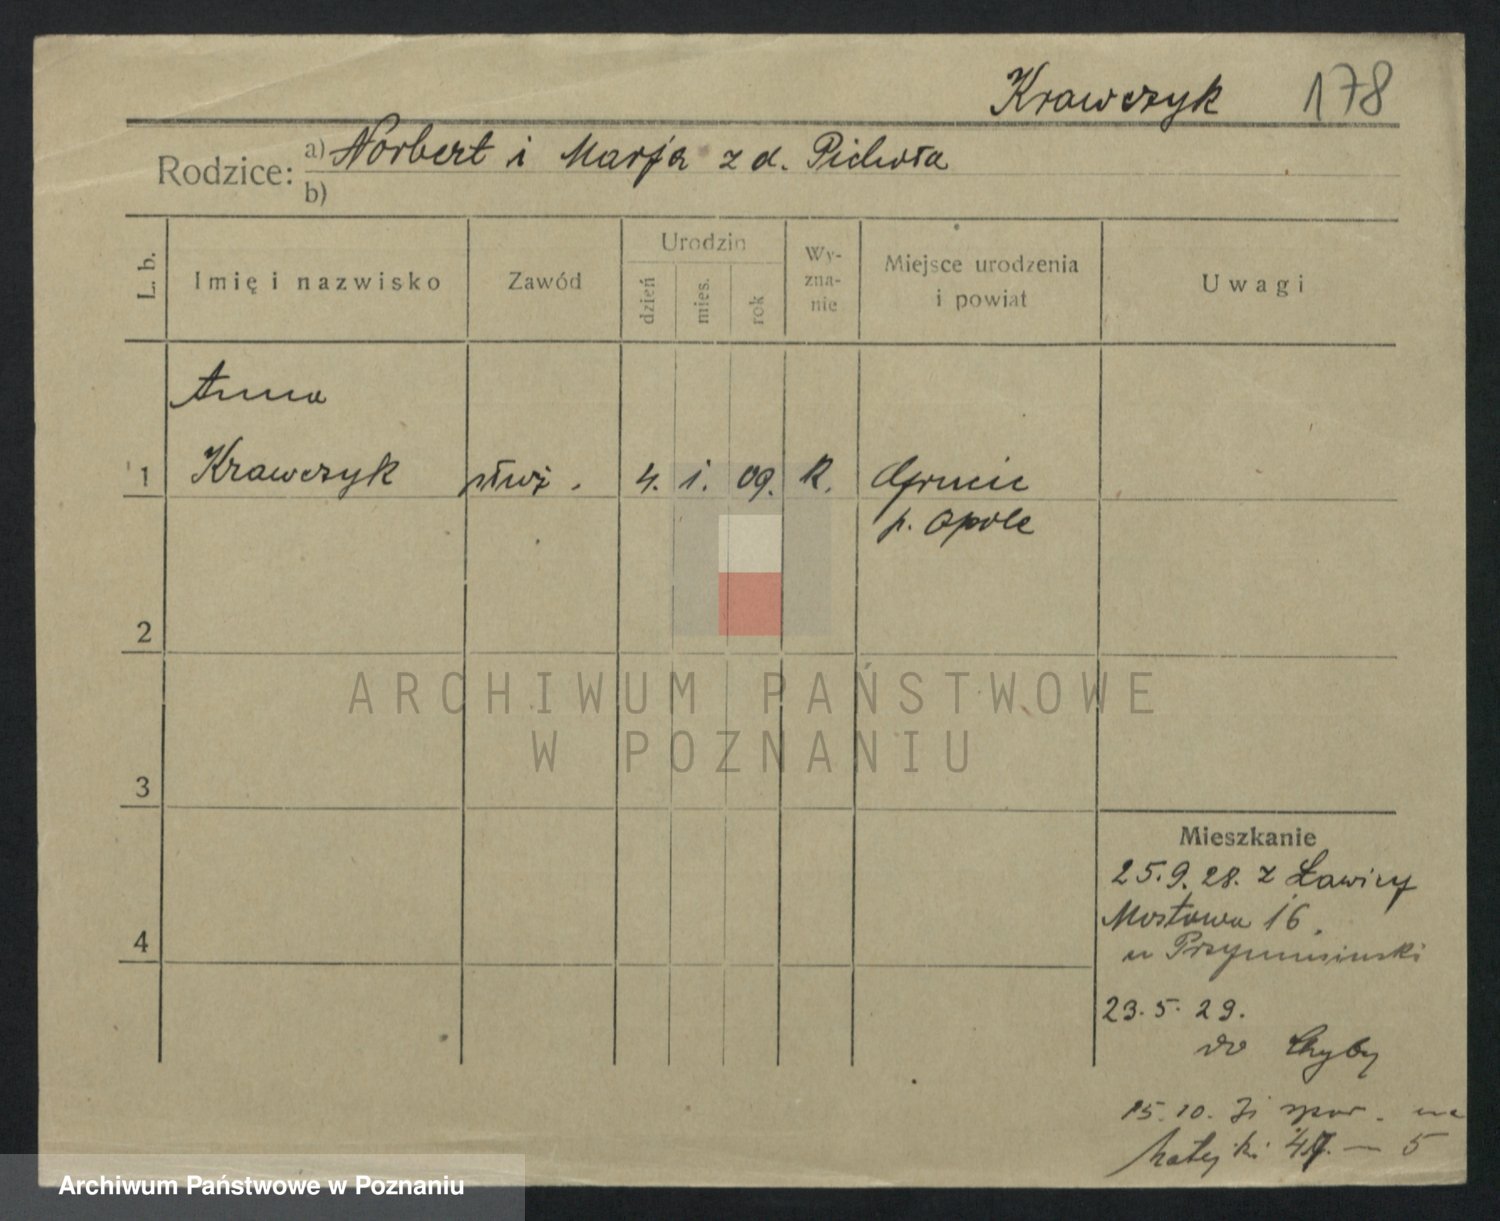 Krawczyk 178
Rodzice: a) Norbert i Marja z d. Pichota
b)
L. b. Imię i nazwisko Zawód Urodzin dzień mies. rok Wy-zna-nie Miejsce urodzenia i powiat Uwagi
Anna
1 Krawczyk służ. 4. 1. 09. R.
p. Opole
2
3
4
Mieszkanie
25.9.28. z Ławicy
Mostowa 16.
u
23.5.29.
do Chyby
15.10.
Matejki 5
ARCHIWUM PAŃSTWOWE
W POZNANIU
Archiwum Państwowe w Poznaniu